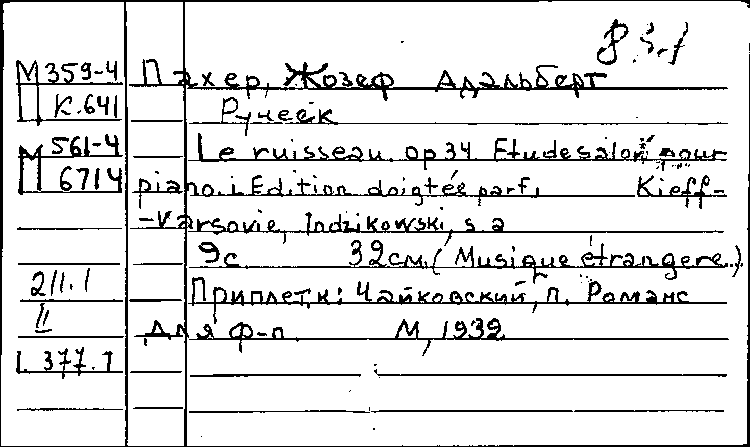 М 359-4 Пахер, Жозеф Адальберт
К.641 Ручеек
М 561-4 Le ruisseau. op 34. Etude salon pour
6714 piano. i Edition doigtée par f. Kieff-
-Varsovie, Indzikowski, s. a
9с 32см. (Musique étrangere..)
2/1.1 Приплет. к: Чайковский, П. Романс
II для ф-п. М, 1939
1. 377.7